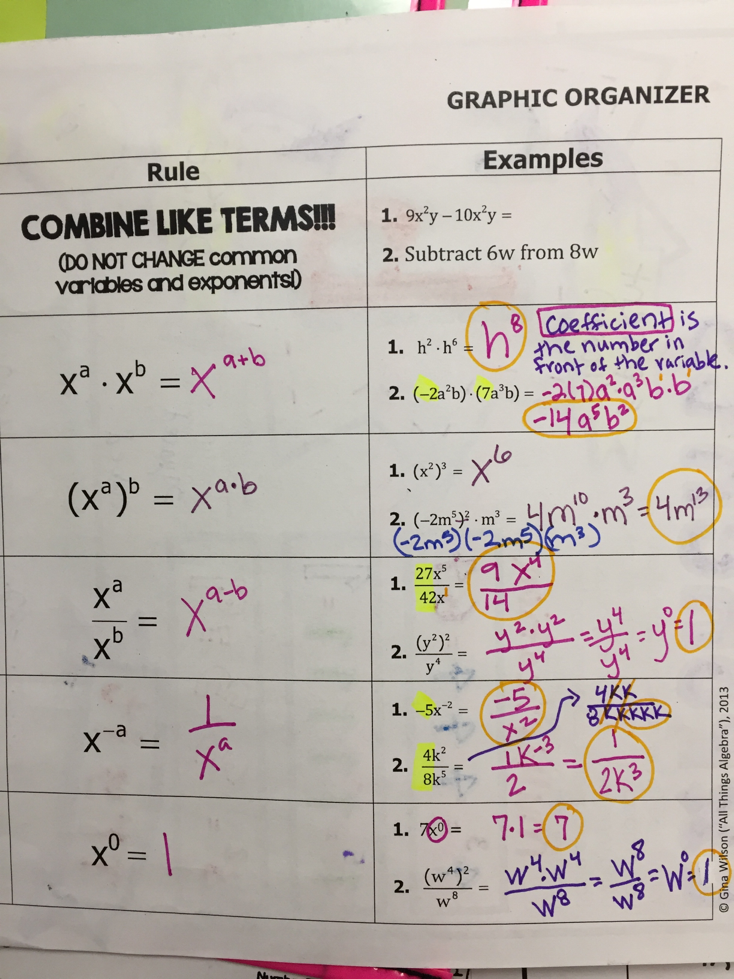 GRAPHIC ORGANIZER
Rule
Examples
COMBINE LIKE TERMS!!!
(DO NOT CHANGE common
variables and exponents!)
1. 9x²y – 10x²y =
2. Subtract 6w from 8w
xᵃ · xᵇ = xᵃ⁺ᵇ
1. h² · h⁶ = h⁸
Coefficient is
the number in
front of the variable.
2. (–2a²b) · (7a³b) = -2(7)a²·a³b·b
-14a⁵b²
(xᵃ)ᵇ = xᵃ·ᵇ
1. (x²)³ = x⁶
2. (–2m⁵)² · m³ = 4m¹⁰·m³ = 4m¹³
(-2m⁵)(-2m⁵)(m³)
xᵃ/xᵇ = xᵃ⁻ᵇ
1. 27x⁵/42x = 9x⁴/14
2. (y²)²/y⁴ = y²·y²/y⁴ = y⁴/y⁴ = y⁰ = 1
x⁻ᵃ = 1/xᵃ
1. –5x⁻² = -5/x²
4KK/8KKKKK
2. 4k²/8k⁵ = 1K⁻³/2 = 1/2K³
x⁰ = 1
1. 7x⁰ = 7·1 = 7
2. (w⁴)²/w⁸ = w⁴·w⁴/w⁸ = w⁸/w⁸ = w⁰ = 1
© Gina Wilson ("All Things Algebra"), 2013